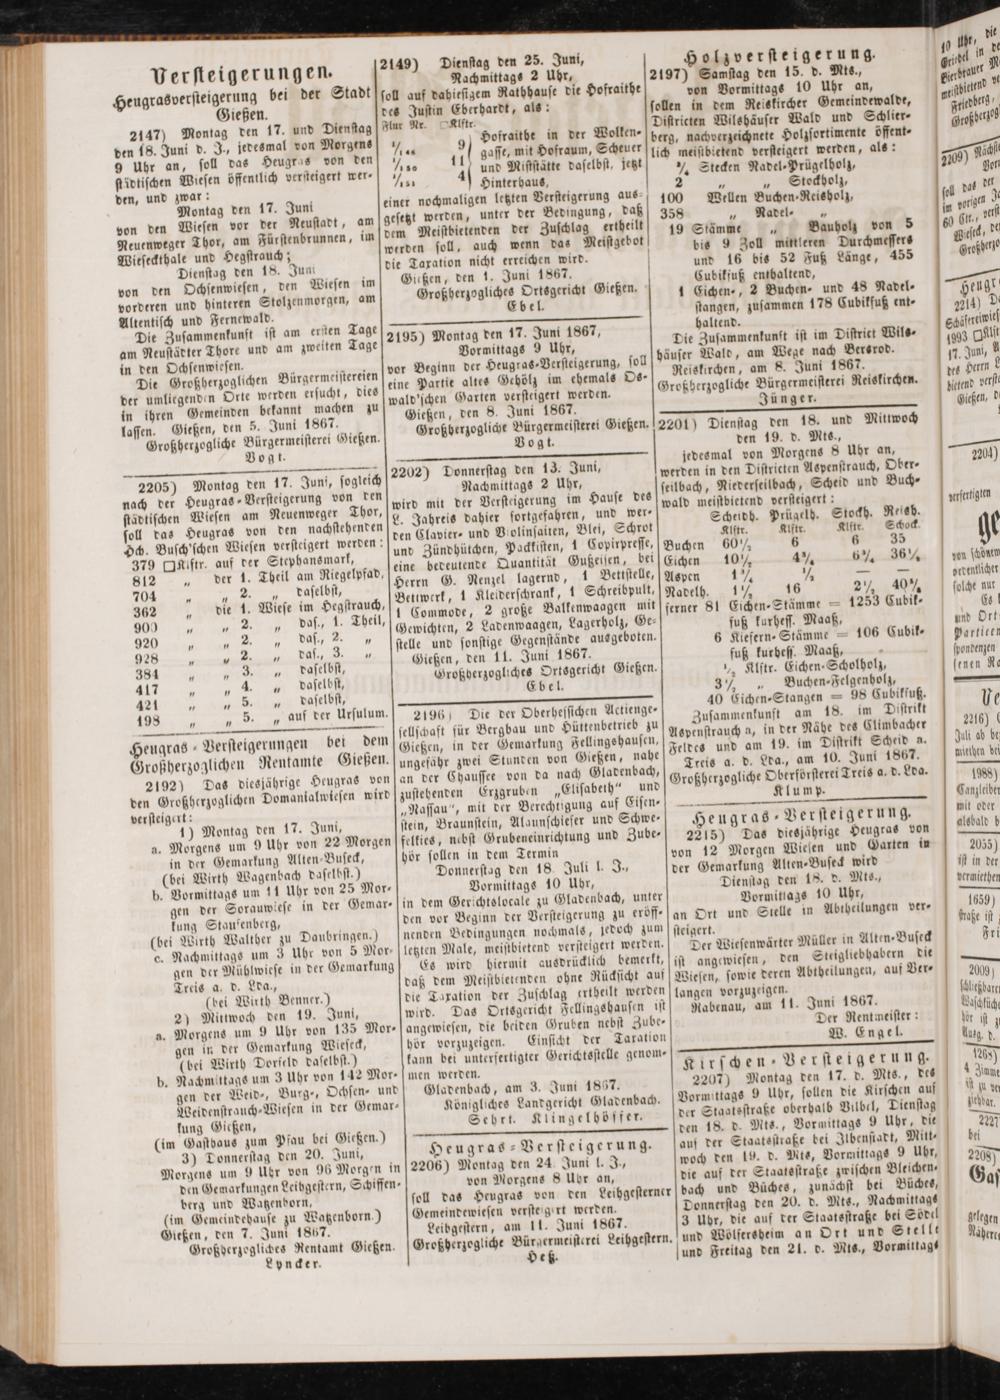 Versteigerungen.
Heugrasversteigerung bei der Stadt
Gießen.
2147) Montag den 17. und Dienstag
den 18. Juni d. J., jedesmal von Morgens
9 Uhr an, soll das Heugras von den
städtischen Wiesen öffentlich versteigert wer-
den, und zwar:
Montag den 17. Juni
von den Wiesen vor der Neustadt, am
Neuenweger Thor, am Fürstenbrunnen, im
Wieseckthale und Hegstrauch;
Dienstag den 18. Juni
von den Ochsenwiesen, den Wiesen im
vorderen und hinteren Stolzenmorgen, am
Altentisch und Fernewald.
Die Zusammenkunft ist am ersten Tage
am Neustädter Thore und am zweiten Tage
in den Ochsenwiesen.
Die Großherzoglichen Bürgermeistereien
der umliegenden Orte werden ersucht, dies
in ihren Gemeinden bekannt machen zu
lassen. Gießen, den 5. Juni 1867.
Großherzogliche Bürgermeisterei Gießen.
Vogt.
2205) Montag den 17. Juni, sogleich
nach der Heugras-Versteigerung von den
städtischen Wiesen am Neuenweger Thor,
soll das Heugras von den nachstehenden
Hch. Busch'schen Wiesen versteigert werden:
379 □Klftr. auf der Stephansmark,
812 „ der 1. Theil am Riegelpfad,
704 „ „ 2. „ daselbst,
362 „ die 1. Wiese im Hegstrauch,
900 „ „ 2. „ das., 1. Theil,
920 „ „ 2. „ das., 2. „
928 „ „ 2. „ das., 3. „
384 „ „ 3. „ daselbst,
417 „ „ 4. „ daselbst,
421 „ „ 5. „ daselbst,
198 „ „ 5. „ auf der Ursulum.
Heugras-Versteigerungen bei dem
Großherzoglichen Rentamte Gießen.
2192) Das diesjährige Heugras von
den Großherzoglichen Domanialwiesen wird
versteigert:
1) Montag den 17. Juni,
a. Morgens um 9 Uhr von 22 Morgen
in der Gemarkung Alten-Buseck,
(bei Wirth Wagenbach daselbst.)
b. Vormittags um 11 Uhr von 25 Mor-
gen der Sorauwiese in der Gemar-
kung Staufenberg,
(bei Wirth Walther zu Daubringen.)
c. Nachmittags um 3 Uhr von 5 Mor-
gen der Mühlwiese in der Gemarkung
Treis a. d. Lda.,
(bei Wirth Benner.)
2) Mittwoch den 19. Juni,
a. Morgens um 9 Uhr von 135 Mor-
gen in der Gemarkung Wieseck,
(bei Wirth Dorfeld daselbst.)
b. Nachmittags um 3 Uhr von 142 Mor-
gen der Weid-, Burg-, Ochsen- und
Weidenstrauch-Wiesen in der Gemar-
kung Gießen,
(im Gasthaus zum Pfau bei Gießen.)
3) Donnerstag den 20. Juni,
Morgens um 9 Uhr von 96 Morgen in
den Gemarkungen Leihgestern, Schiffen-
berg und Watzenborn,
(im Gemeindehause zu Watzenborn.)
Gießen, den 7. Juni 1867.
Großherzogliches Rentamt Gießen.
Lyncker.
2149) Dienstag den 25. Juni,
Nachmittags 2 Uhr,
soll auf dahiesigem Rathhause die Hofraithe
des Justin Eberhardt, als:
Flur Nr. □Klftr.
1/146 9 Hofraithe in der Wolken-
gasse, mit Hofraum, Scheuer
1/150 11 und Miststätte daselbst, jetzt
1/151 4 Hinterhaus,
einer nochmaligen letzten Versteigerung aus-
gesetzt werden, unter der Bedingung, daß
dem Meistbietenden der Zuschlag ertheilt
werden soll, auch wenn das Meistgebot
die Taxation nicht erreichen wird.
Gießen, den 1. Juni 1867.
Großherzogliches Ortsgericht Gießen.
Ebel.
2195) Montag den 17. Juni 1867,
Vormittags 9 Uhr,
vor Beginn der Heugras-Versteigerung, soll
eine Partie altes Gehölz im ehemals Os-
wald'schen Garten versteigert werden.
Gießen, den 8. Juni 1867.
Großherzogliche Bürgermeisterei Gießen.
Vogt.
2202) Donnerstag den 13. Juni,
Nachmittags 2 Uhr,
wird mit der Versteigerung im Hause des
L. Jahreis dahier fortgefahren, und wer-
den Clavier- und Violinsaiten, Blei, Schrot
und Zündhütchen, Packkisten, 1 Copirpresse,
eine bedeutende Quantität Gußeisen, bei
Herrn G. Menzel lagernd, 1 Bettstelle,
Bettwerk, 1 Kleiderschrank, 1 Schreibpult,
1 Commode, 2 große Balkenwaagen mit
Gewichten, 2 Ladenwaagen, Lagerholz, Ge-
stelle und sonstige Gegenstände ausgeboten.
Gießen, den 11. Juni 1867.
Großherzogliches Ortsgericht Gießen.
Ebel.
2196) Die der Oberhessischen Actienge-
sellschaft für Bergbau und Hüttenbetrieb zu
Gießen, in der Gemarkung Fellingshausen,
ungefähr zwei Stunden von Gießen, nahe
an der Chaussee von da nach Gladenbach,
zustehenden Erzgruben „Elisabeth“ und
„Nassau“, mit der Berechtigung auf Eisen-
stein, Braunstein, Alaunschiefer und Schwe-
felkies, nebst Grubeneinrichtung und Zube-
hör sollen in dem Termin
Donnerstag den 18. Juli l. J.,
Vormittags 10 Uhr,
in dem Gerichtslocale zu Gladenbach, unter
den vor Beginn der Versteigerung zu eröff-
nenden Bedingungen nochmals, jedoch zum
letzten Male, meistbietend versteigert werden.
Es wird hiermit ausdrücklich bemerkt,
daß dem Meistbietenden ohne Rücksicht auf
die Taxation der Zuschlag ertheilt werden
wird. Das Ortsgericht Fellingshausen ist
angewiesen, die beiden Gruben nebst Zube-
hör vorzuzeigen. Einsicht der Taxation
kann bei unterfertigter Gerichtsstelle genom-
men werden.
Gladenbach, am 3. Juni 1867.
Königliches Landgericht Gladenbach.
Sehrt. Klingelhöffer.
Heugras-Versteigerung.
2206) Montag den 24. Juni l. J.,
von Morgens 8 Uhr an,
soll das Heugras von den Leihgesterner
Gemeindewiesen versteigert werden.
Leihgestern, am 11. Juni 1867.
Großherzogliche Bürgermeisterei Leihgestern.
Heß.
Holzversteigerung.
2197) Samstag den 15. d. Mts.,
von Vormittags 10 Uhr an,
sollen in dem Reiskircher Gemeindewalde,
Districten Wilshäuser Wald und Schlier-
berg, nachverzeichnete Holzsortimente öffent-
lich meistbietend versteigert werden, als:
3/4 Stecken Nadel-Prügelholz,
2 „ „ Stockholz,
100 Wellen Buchen-Reisholz,
358 „ Nadel- „
19 Stämme „ Bauholz von 5
bis 9 Zoll mittleren Durchmessers
und 16 bis 52 Fuß Länge, 455
Cubikfuß enthaltend,
1 Eichen-, 2 Buchen- und 48 Nadel-
stangen, zusammen 178 Cubikfuß ent-
haltend.
Die Zusammenkunft ist im District Wils-
häuser Wald, am Wege nach Bersrod.
Reiskirchen, am 8. Juni 1867.
Großherzogliche Bürgermeisterei Reiskirchen.
Jünger.
2201) Dienstag den 18. und Mittwoch
den 19. d. Mts.,
jedesmal von Morgens 8 Uhr an,
werden in den Districten Aspenstrauch, Ober-
seilbach, Niederseilbach, Scheid und Buch-
wald meistbietend versteigert:
Scheidh. Prügelh. Stockh. Reish.
Klftr. Klftr. Klftr. Schock.
Buchen 60 1/2 6 6 35
Eichen 10 1/2 4 3/4 6 3/4 36 1/4
Aspen 1 3/4 1/2 — —
Nadelh. 1 1/2 16 2 1/2 40 3/4
ferner 81 Eichen-Stämme = 1253 Cubik-
fuß kurhess. Maaß,
6 Kiefern-Stämme = 106 Cubik-
fuß kurhess. Maaß,
1/2 Klftr. Eichen-Scholholz,
3 1/2 „ Buchen-Felgenholz,
40 Eichen-Stangen = 98 Cubikfuß.
Zusammenkunft am 18. im Distrikt
Aspenstrauch a, in der Nähe des Climbacher
Feldes und am 19. im Distrikt Scheid a.
Treis a. d. Lda., am 10. Juni 1867.
Großherzogliche Oberförsterei Treis a. d. Lda.
Klump.
Heugras-Versteigerung.
2215) Das diesjährige Heugras von
von 12 Morgen Wiesen und Garten in
der Gemarkung Alten-Buseck wird
Dienstag den 18. d. Mts.,
Vormittags 10 Uhr,
an Ort und Stelle in Abtheilungen ver-
steigert.
Der Wiesenwärter Müller in Alten-Buseck
ist angewiesen, den Steigliebhabern die
Wiesen, sowie deren Abtheilungen, auf Ver-
langen vorzuzeigen.
Rabenau, am 11. Juni 1867.
Der Rentmeister:
W. Engel.
Kirschen-Versteigerung.
2207) Montag den 17. d. Mts., des
Vormittags 9 Uhr, sollen die Kirschen auf
der Staatsstraße oberhalb Vilbel, Dienstag
den 18. d. Mts., Vormittags 9 Uhr, die
auf der Staatsstraße bei Ilbenstadt, Mitt-
woch den 19. d. Mts, Vormittags 9 Uhr,
die auf der Staatsstraße zwischen Bleichen-
bach und Büches, zunächst bei Büches,
Donnerstag den 20. d. Mts., Nachmittags
3 Uhr, die auf der Staatsstraße bei Södel
und Wölfersheim an Ort und Stelle
und Freitag den 21. d. Mts., Vormittags
10 Uhr, die
2209)
2214)
2204)
2216)
1988)
2055)
1659)
2009)
1268)
2227
2208)